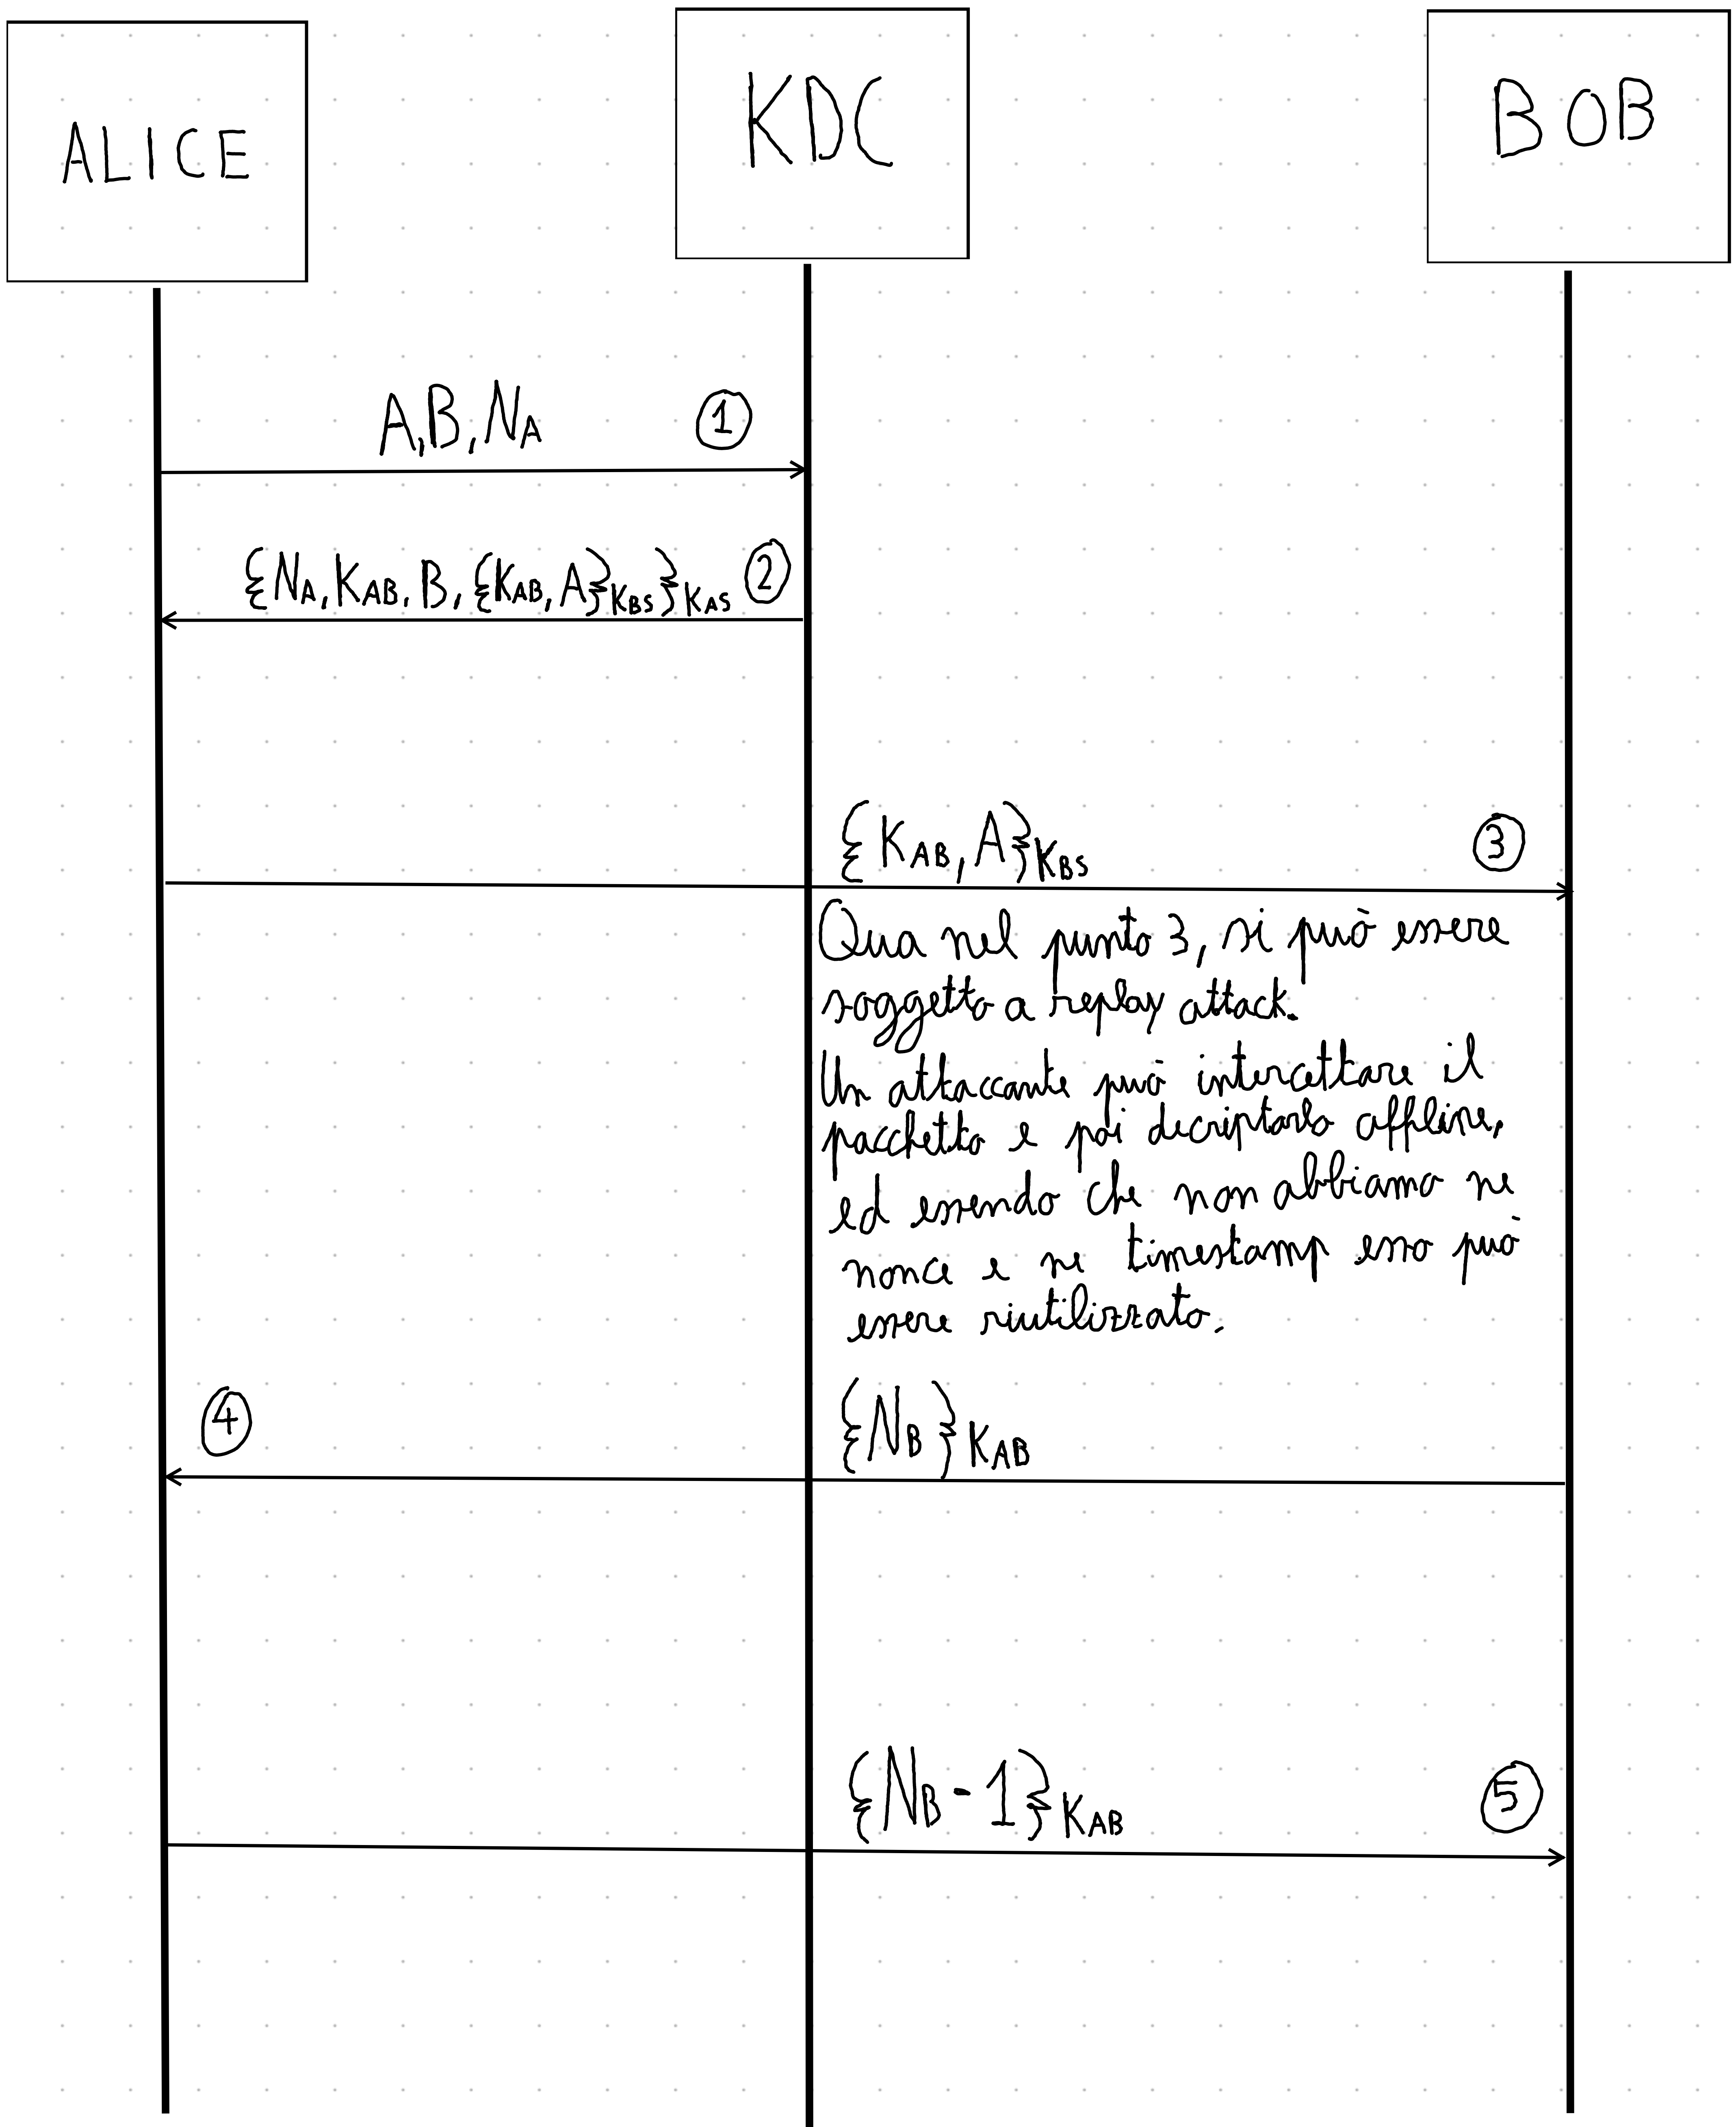 ALICE
KDC
BOB
A, B, NA
1
{NA, KAB, B, {KAB, A}KBS}KAS
2
{KAB, A}KBS
3
Qua nel punto 3, si può essere
soggetto a replay attack.
Un attaccante può intercettare il
pacchetto e poi decriptarlo offline,
ed essendo che non abbiamo ne
nonce e ne timestamp esso può
essere riutilizzato.
4
{NB}KAB
{NB-1}KAB
5